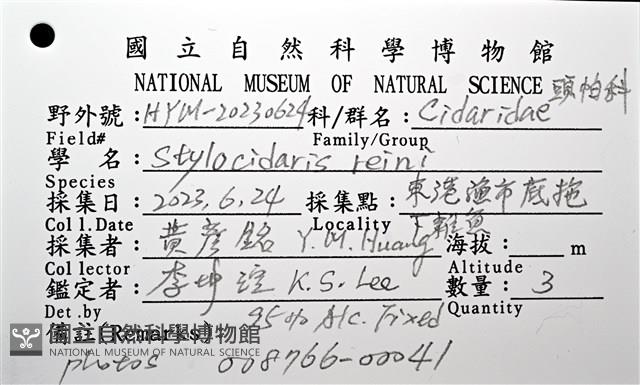 國立自然科學博物館
NATIONAL MUSEUM OF NATURAL SCIENCE 頭帕科
野外號：HYM-20230624 科/群名：Cidaridae
Field# Family/Group
學 名：Stylocidaris reini
Species
採集日：2023.6.24 採集點：東港漁市底拖
Coll.Date Locality 下雜魚
採集者：黃彥銘 Y.M.Huang 海拔： m
Collector Altitude
鑑定者：李坤瑄 K.S.Lee 數量：3
Det.by 95% Alc. Fixed Quantity
Remarks
國立自然科學博物館
NATIONAL MUSEUM OF NATURAL SCIENCE
photos 008766-00041